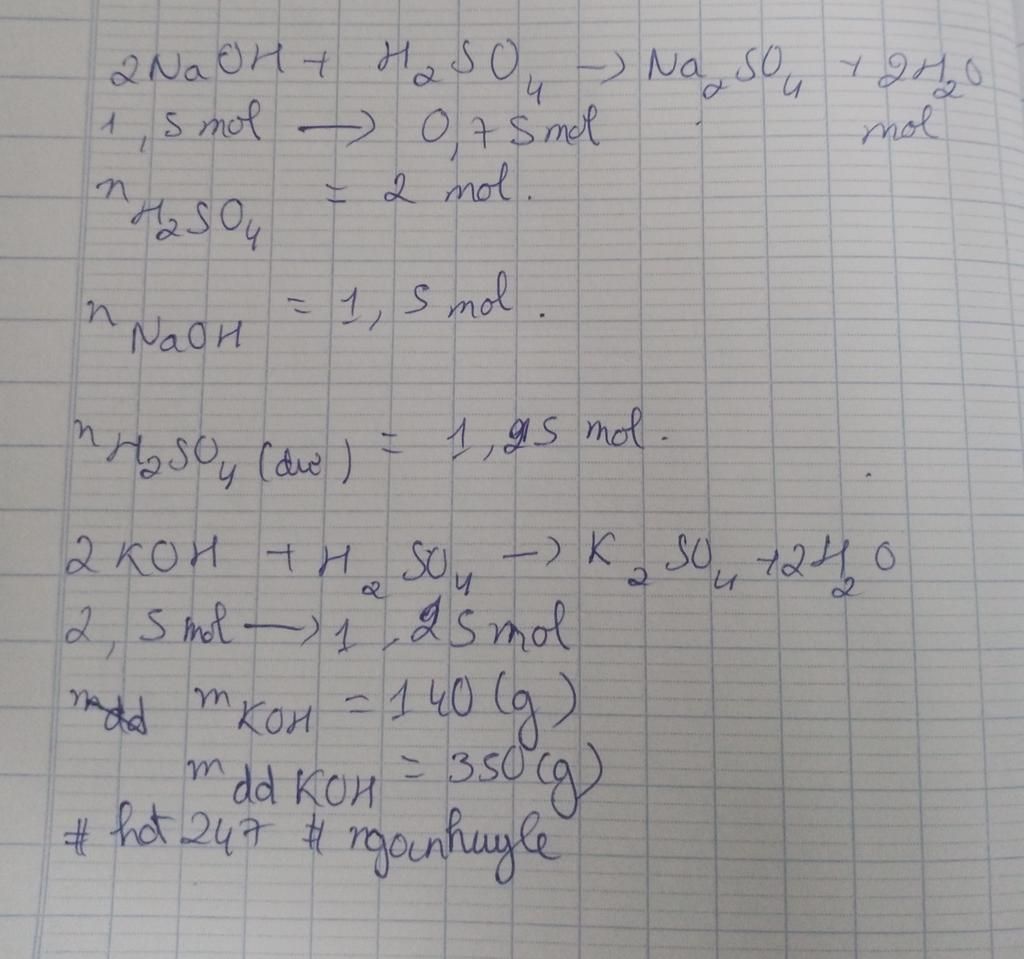 2NaOH + H₂SO₄ → Na₂SO₄ + 2H₂O
1,5 mol → 0,75 mol mol
n H₂SO₄ = 2 mol.
n NaOH = 1,5 mol.
n H₂SO₄ (dư) = 1,25 mol.
2KOH + H₂SO₄ → K₂SO₄ + 2H₂O
2,5 mol → 1,25 mol
m KOH = 140 (g)
m dd KOH = 350 (g)